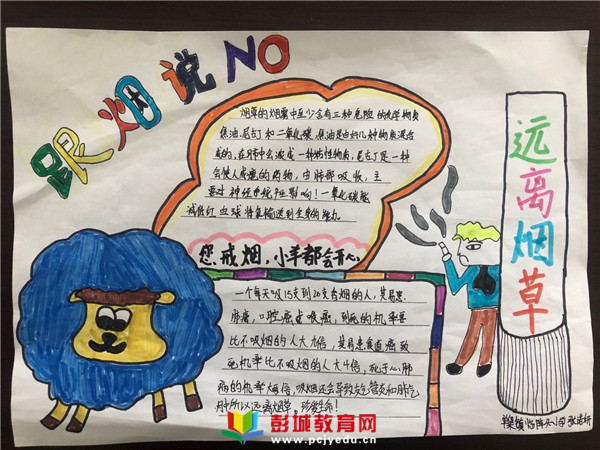 跟烟说NO
烟草的烟雾中至少含有三种危险的化学物质
焦油,尼古丁和一氧化碳,焦油是由好几种物质混合
成的,在肺中会浓成一种粘性物质,尼古丁是一种
会使人成瘾的药物,由肺部吸收,主
要对神经系统产生影响!一氧化碳能
减低红血球将氧输送到全身的能力
您戒烟,小羊都会开心
一个每天吸15支到20支香烟的人,其易患
肺癌,口腔癌或喉癌,到死的机率要
比不吸烟的人大14倍,其易患食道癌致
死机率比不吸烟的人大4倍,死于心肺
病的机率
倍,吸烟还会导致支气管炎和肺气
肿所以远离烟草,珍爱生命!
远离烟草
彭城教育网
www.pcjyedu.cn